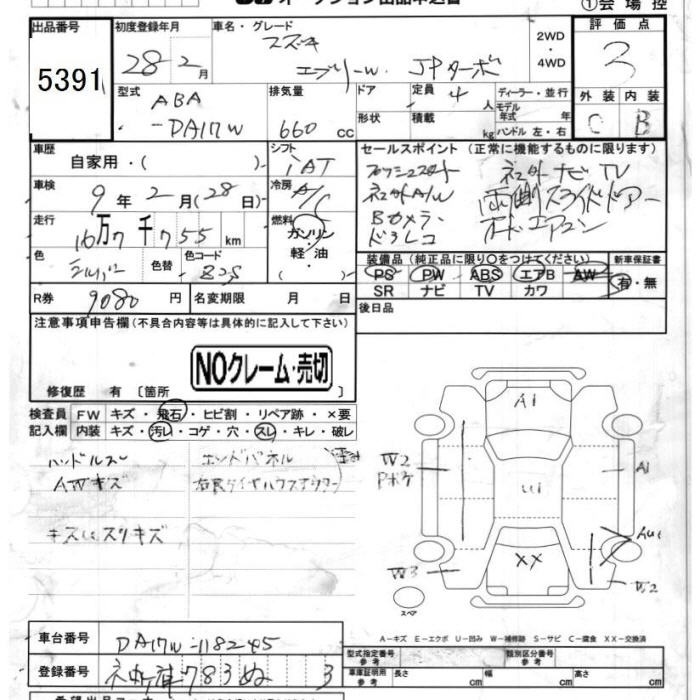 ①会場控
出品番号 初度登録年月 車名・グレード 評価点
スズキ 2WD・4WD
5391 28-2月 エブリーW JPターボ 3
型式 排気量 ドア 定員 4人 ディーラー・並行 外装 内装
ABA モデル年式 年
-DA17W 660cc 形状 積載 kg ハンドル 左・右 C B
車歴 シフト セールスポイント (正常に機能するものに限ります)
自家用・( ) iAT プッシュスタート 社外ナビ TV
車検 冷房 社外A/W 両側スライドドアー
9年2月(28日) A/C Bカメラ オートエアコン
走行 燃料 ドラレコ
16万7千755km ガソリン・軽油・( )
色 色替 色コード 装備品 (純正品に限り○をつけてください) 新車保証書
シルバー PS PW ABS エアB AW 有・無
SR ナビ TV カワ
R券 9080円 名変期限 月 日 後日品
注意事項申告欄 (不具合内容等は具体的に記入して下さい)
NOクレーム・売切
修復歴 有 〔箇所 〕
検査員 FW キズ・飛石・ヒビ割・リペア跡・×要
記入欄 内装 キズ・汚レ・コゲ・穴・スレ・キレ・破レ
ハンドルスレ エンドパネル
AWキズ
キズUスリキズ
A1
W2 A1
Pボケ
U1
XX
W3
スペア
A-キズ E-エクボ U-凹み W-補修跡 S-サビ C-腐食 XX-交換済
車台番号 DA17W-118245 型式指定番号 参考 類別区分番号 参考
登録番号 783ぬ 3 車庫証明用 参考 長さ cm 幅 cm 高さ cm